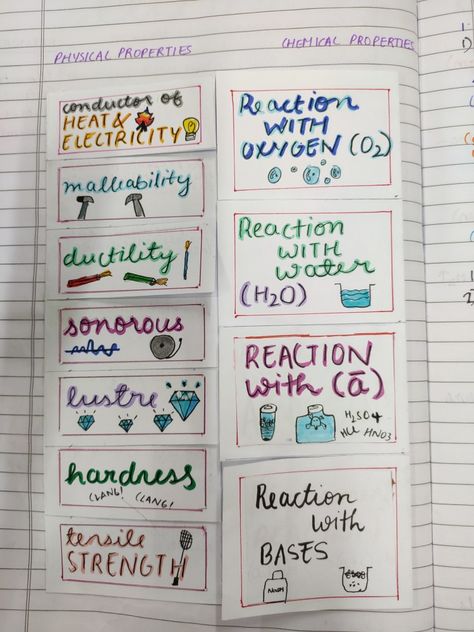 PHYSICAL PROPERTIES
conductor of
HEAT &
ELECTRICITY
malleability
ductility
sonorous
lustre
hardness
CLANG! CLANG!
tensile
STRENGTH
CHEMICAL PROPERTIES
Reaction
WITH
OXYGEN (O2)
Reaction
WITH
water
(H2O)
REACTION
with (ā)
H2SO4
HCl HNO3
Reaction
with
BASES
NaOH